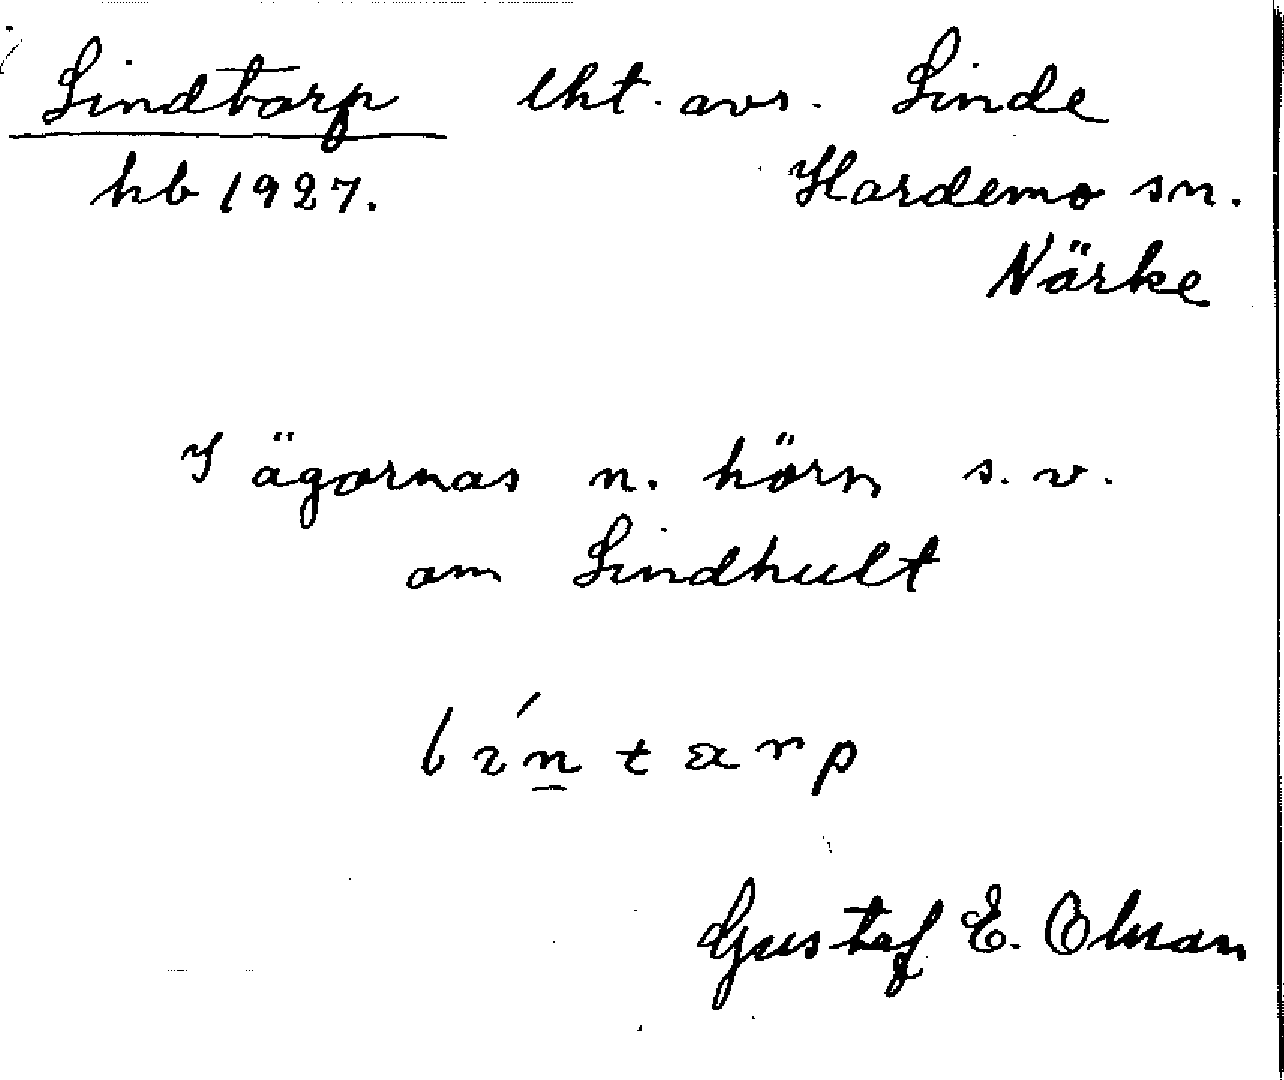 Lindtorp lht. avs. Linde
hb 1927. Hardemo sn.
Närke
I ägornas n. hörn s.v.
om Lindhult
Gustaf E. Olman